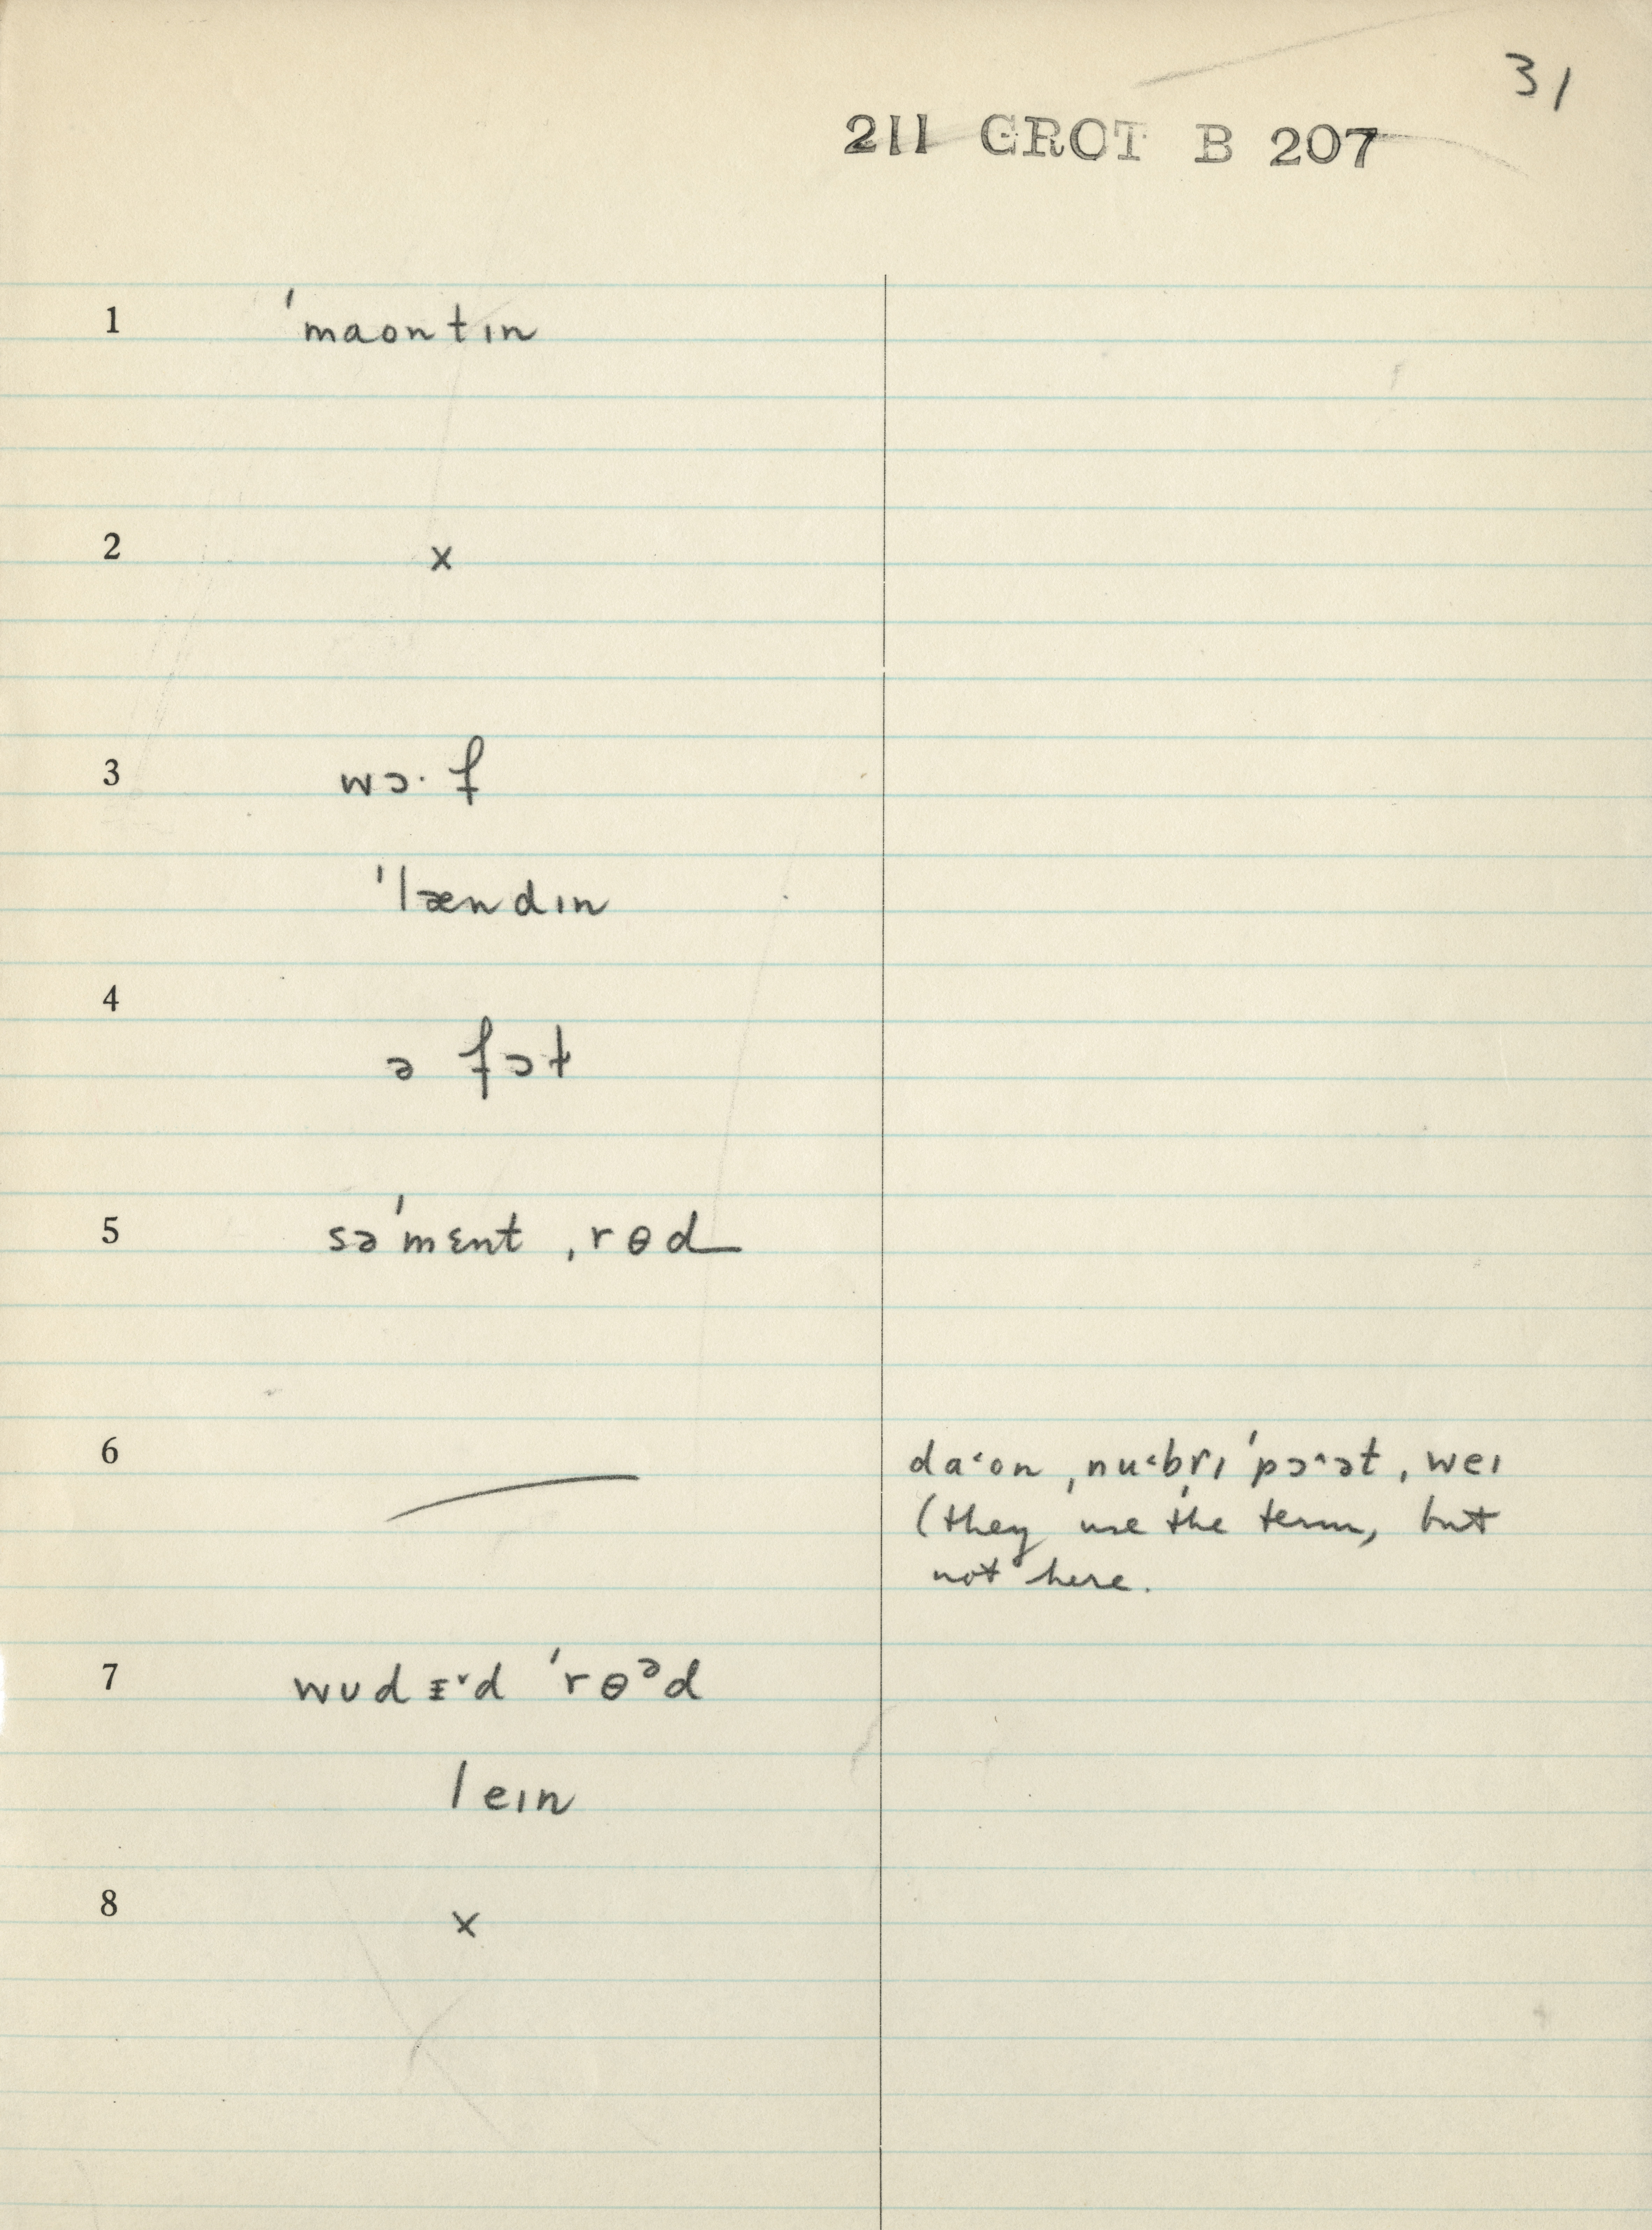 31
211 GROT B 207
1 ˈmaontɪn
2 x
3 wɔ· f
ˈlændɪn
4 ə fɔt
5 səˈmɛnt ˌrɵd
6 daˑon ˌnuˑbrɪˈpɔˑət ˌweɪ
(they use the term, but
not here.
7 wʊdɪˑd ˈrɵᵊd
leɪn
8 x